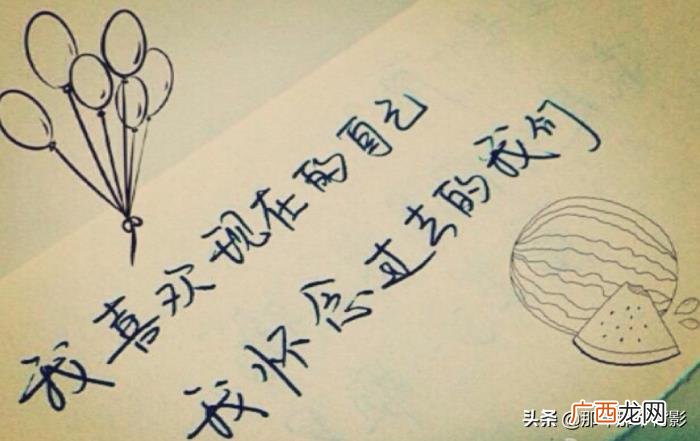 我喜欢现在的自己
我怀念过去的我们
头条 @那
广西龙网
影